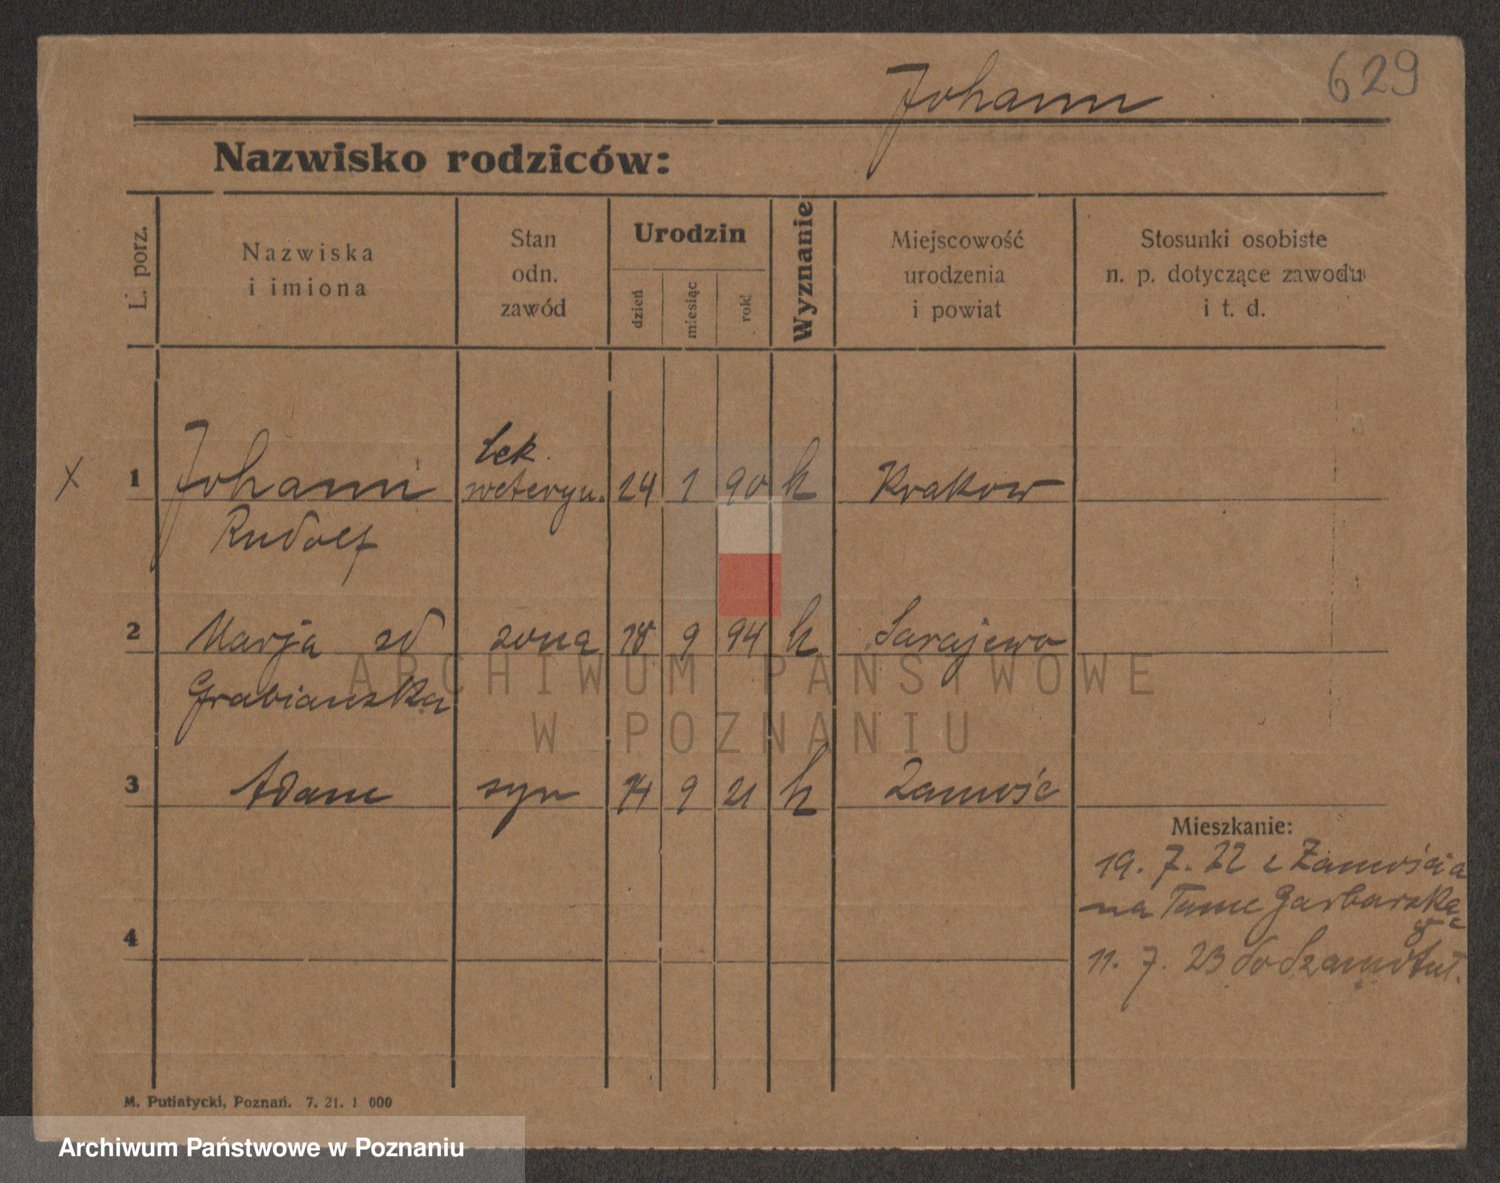 Johann 629
Nazwisko rodziców:
L. porz.
Nazwiska
i imiona
Stan
odn.
zawód
Urodzin
dzień
miesiąc
rok
Wyznanie
Miejscowość
urodzenia
i powiat
Stosunki osobiste
n. p. dotyczące zawodu
i t. d.
x 1 Johann lek. weteryn. 24 1 90 k Krakow
Rudolf
2 Marja zd zona 18 9 94 k Sarajewo
Grabianska
3 Adam syn 14 9 21 k Zamość
Mieszkanie:
19. 7. 22 z Zamościa
na Tame Garbarską
8
4
11. 7. 23 do Szamotuł.
M. Putiatycki, Poznań. 7. 21. 1 000
ARCHIWUM PAŃSTWOWE
W POZNANIU
Archiwum Państwowe w Poznaniu